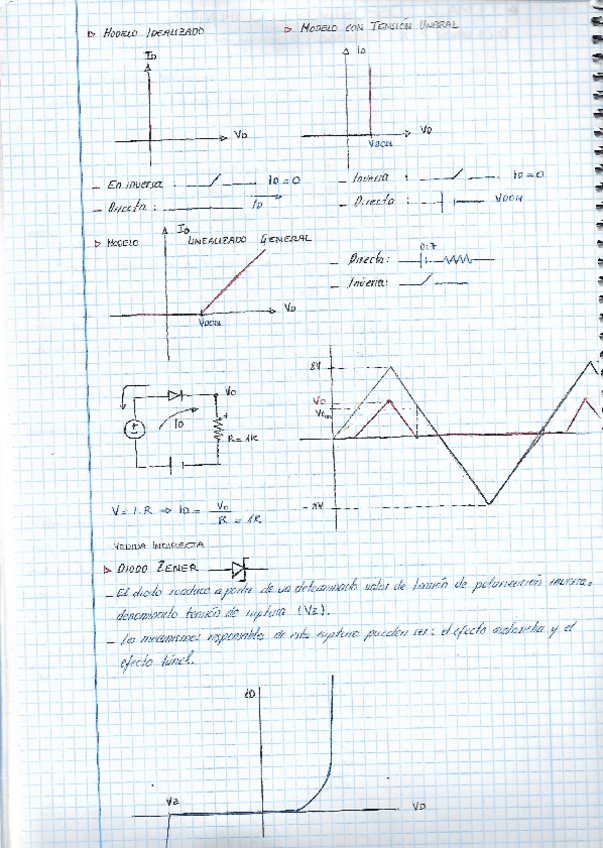 ▷ MODELO IDEALIZADO
▷ MODELO CON TENSIÓN UMBRAL
ID
VD
iD
VD
VDON
- En inversa : iD = 0
- Directa : ID
- Inversa : iD = 0
- Directa : VDON
▷ MODELO LINEALIZADO GENERAL
ID
VD
VDON
- Directa: 0.7
- Inversa:
Vo
iD
+
R = 1K
8V
Vo
V = I . R ⇒ iD = Vo / R = 1K
MEDIDA INDIRECTA
▷ DIODO ZENER
- El diodo conduce a partir de un determinado valor de tensión de polarización inversa,
denominado tensión de ruptura (Vz).
- Los mecanismos responsables de esta ruptura pueden ser: el efecto avalancha y el
efecto túnel.
iD
Vz
VD